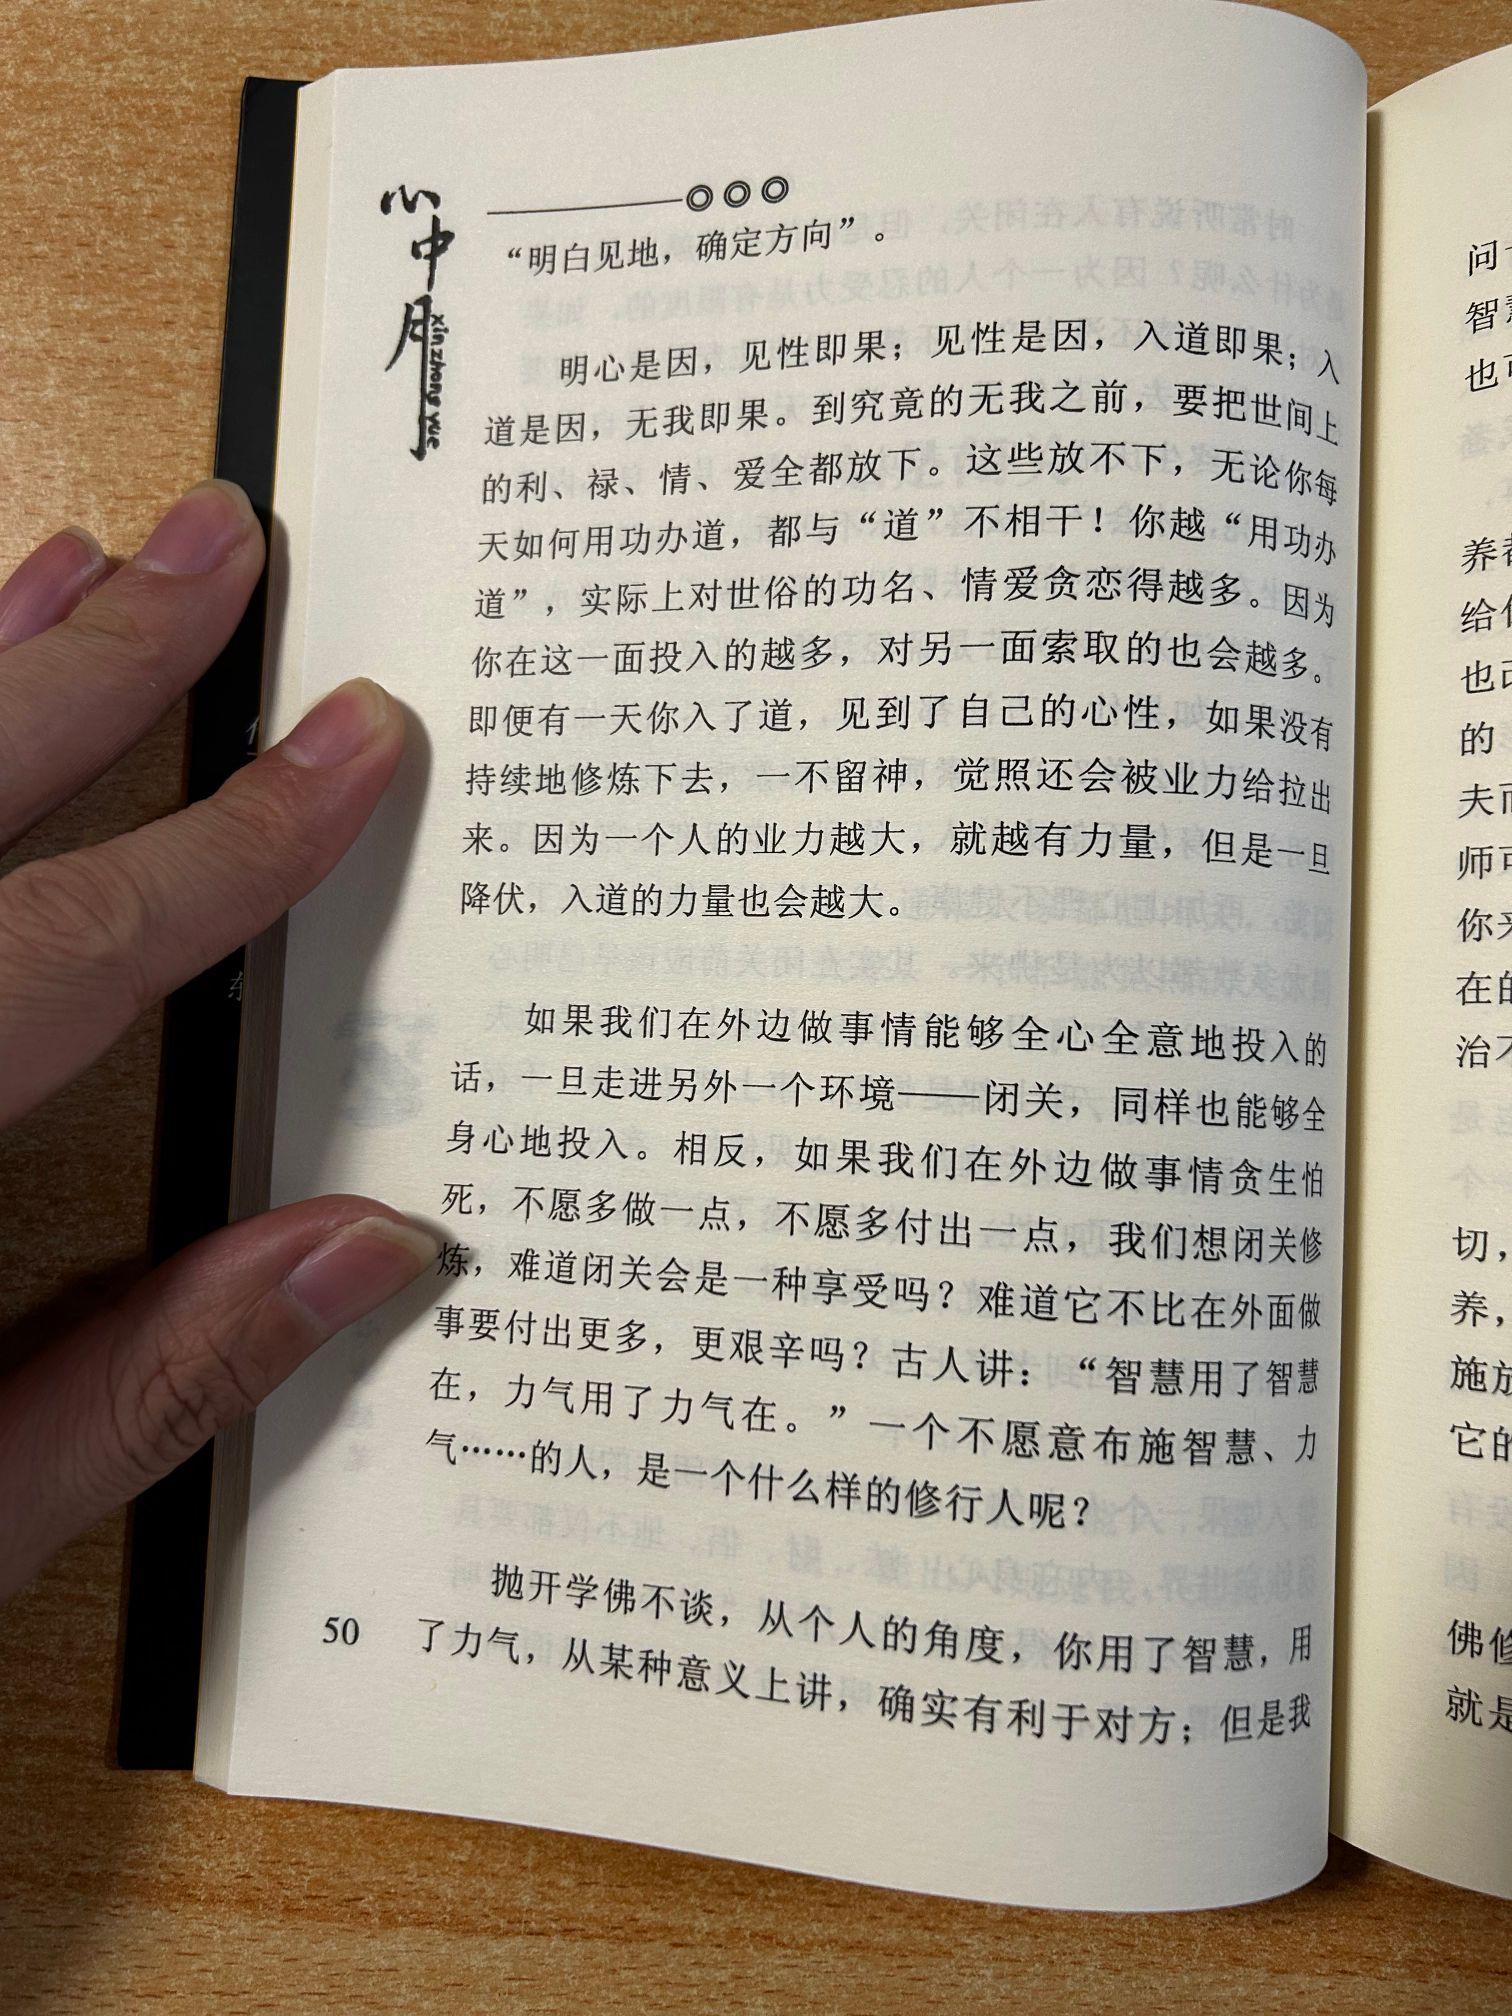 心中月
xin zhong yue
“明白见地，确定方向”。
明心是因，见性即果；见性是因，入道即果；入
道是因，无我即果。到究竟的无我之前，要把世间上
的利、禄、情、爱全都放下。这些放不下，无论你每
天如何用功办道，都与“道”不相干！你越“用功办
道”，实际上对世俗的功名、情爱贪恋得越多。因为
你在这一面投入的越多，对另一面索取的也会越多。
即便有一天你入了道，见到了自己的心性，如果没有
持续地修炼下去，一不留神，觉照还会被业力给拉出
来。因为一个人的业力越大，就越有力量，但是一旦
降伏，入道的力量也会越大。
如果我们在外边做事情能够全心全意地投入的
话，一旦走进另外一个环境——闭关，同样也能够全
身心地投入。相反，如果我们在外边做事情贪生怕
死，不愿多做一点，不愿多付出一点，我们想闭关修
炼，难道闭关会是一种享受吗？难道它不比在外面做
事要付出更多，更艰辛吗？古人讲：“智慧用了智慧
在，力气用了力气在。”一个不愿意布施智慧、力
气……的人，是一个什么样的修行人呢？
抛开学佛不谈，从个人的角度，你用了智慧，用
了力气，从某种意义上讲，确实有利于对方；但是我
50
问
智慧
也
养
给
也
的
夫而
师
你
在的
治不
切，
养，
施放
它的
佛修
就是